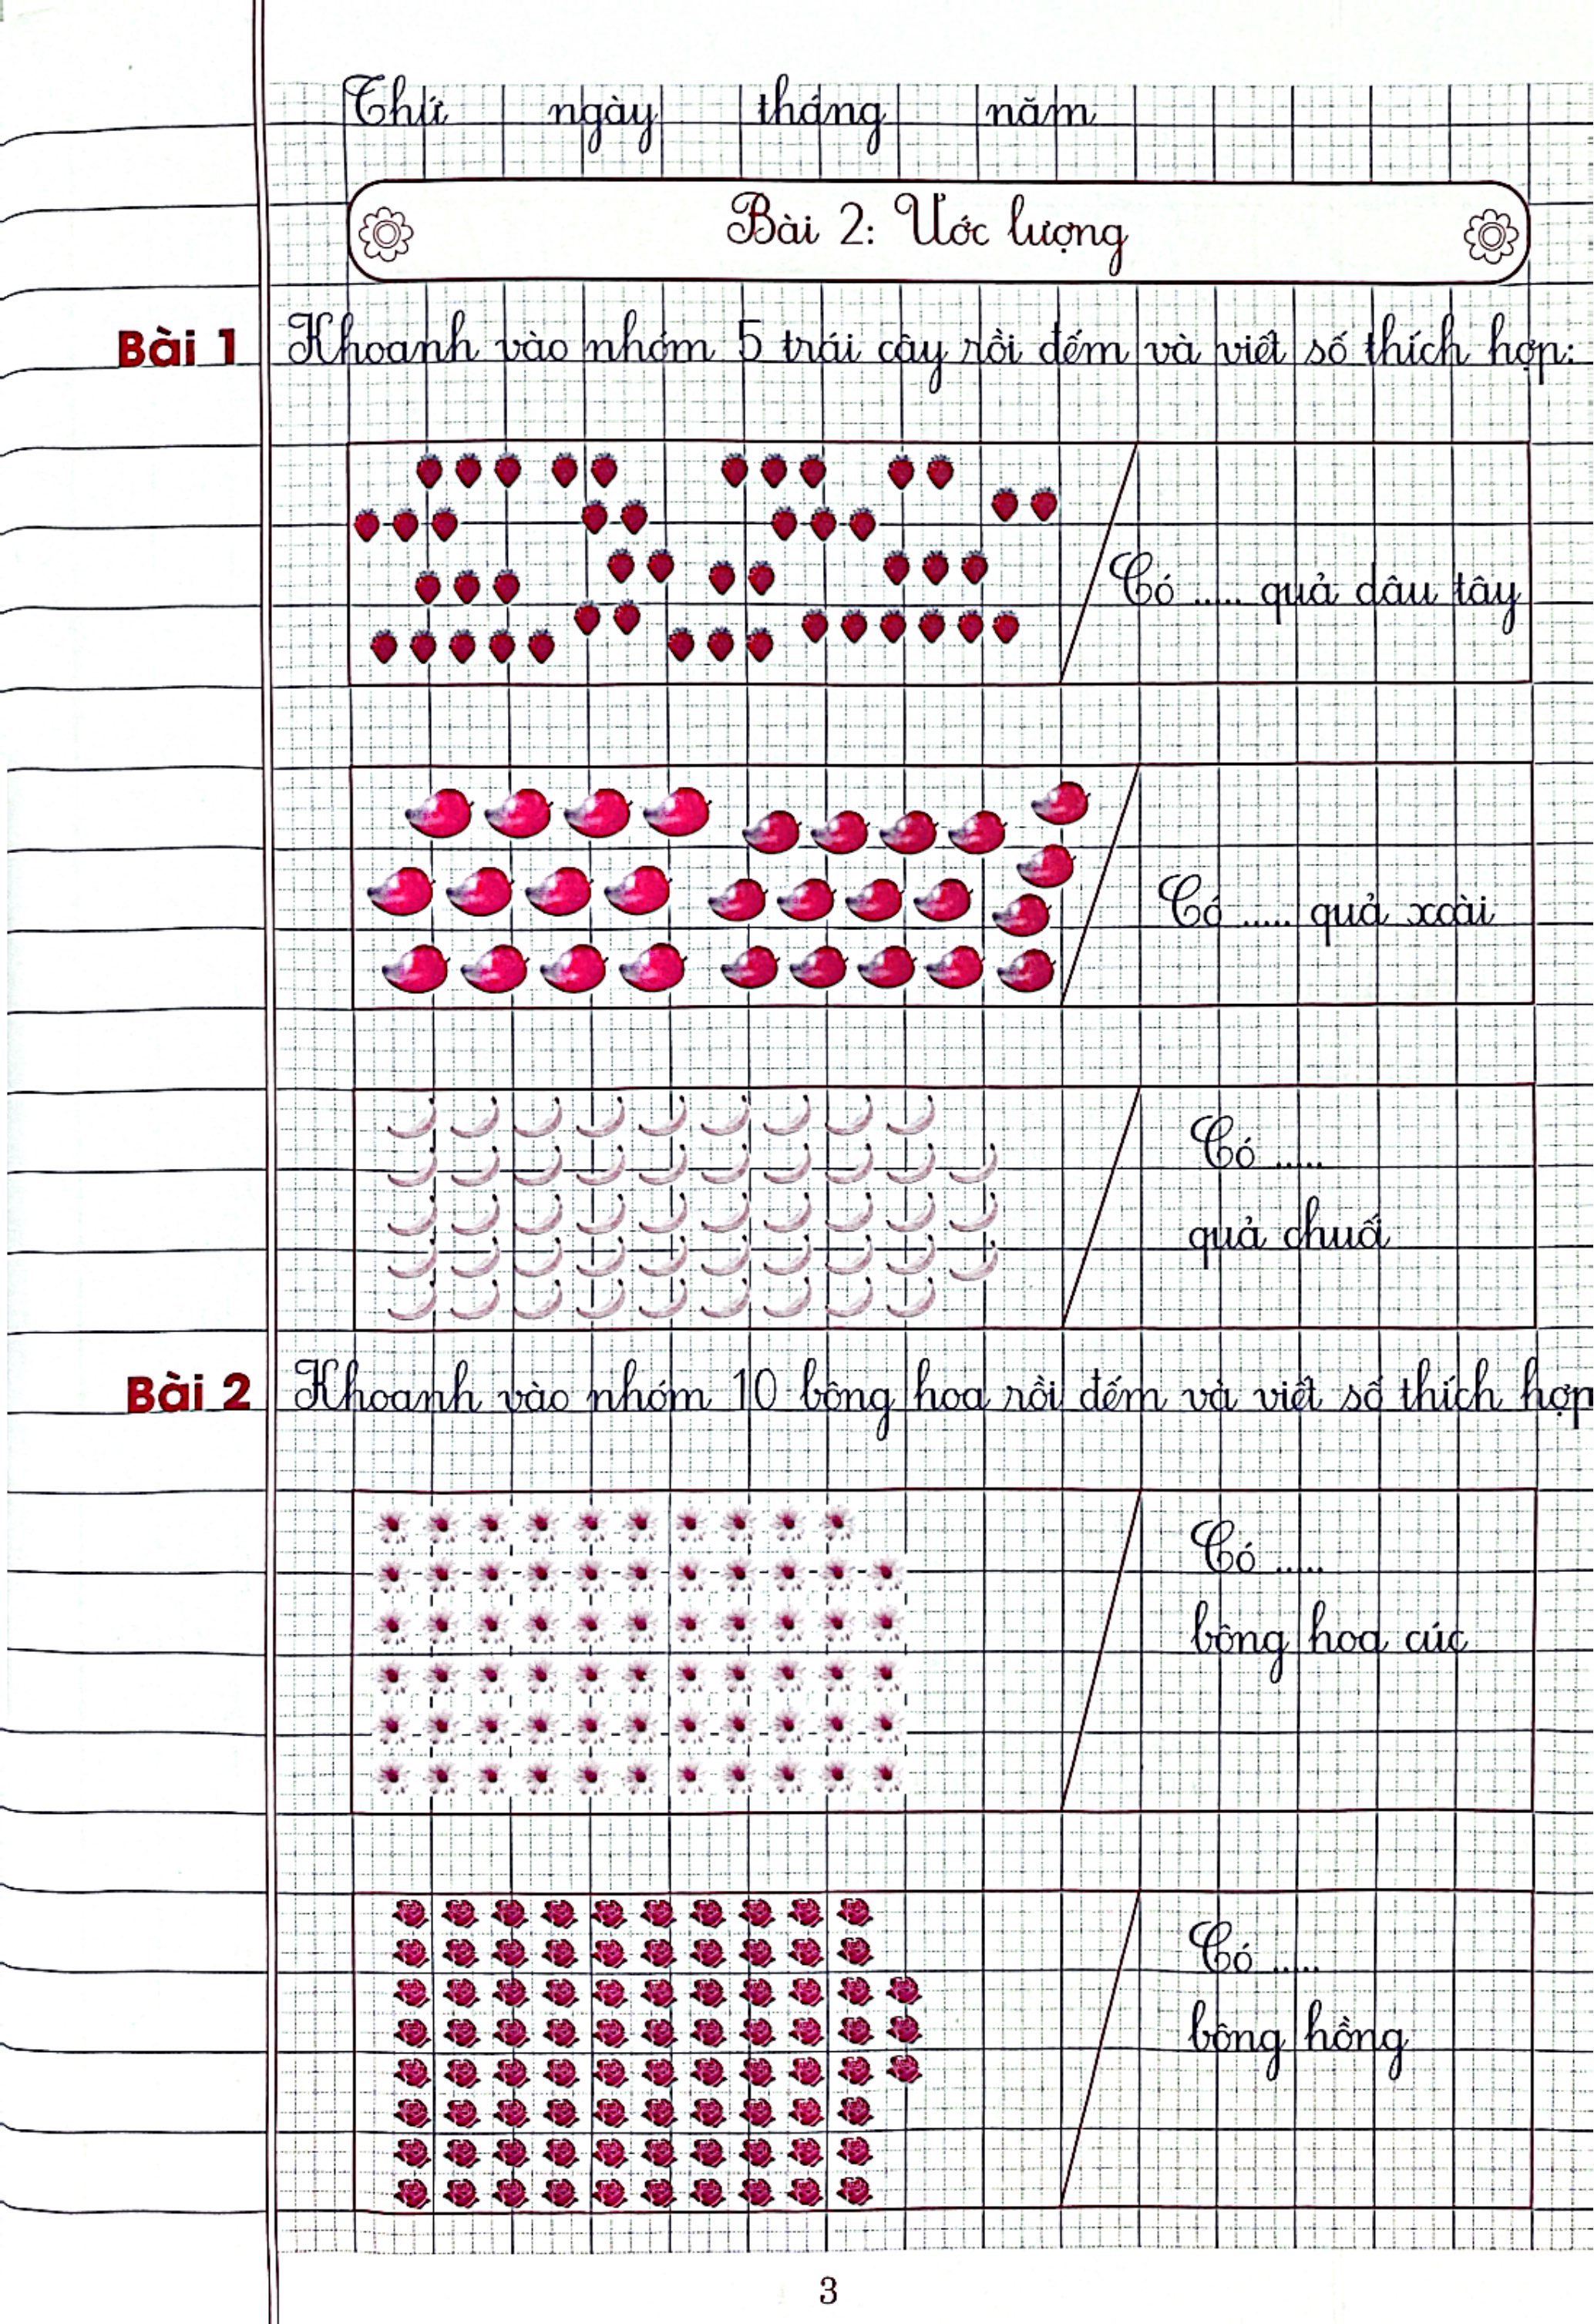 Thứ ngày tháng năm
Bài 2: Ước lượng
Bài 1 Khoanh vào nhóm 5 trái cây rồi đếm và viết số thích hợp:
Có ..... quả dâu tây
Có ..... quả xoài
Có .....
quả chuối
Bài 2 Khoanh vào nhóm 10 bông hoa rồi đếm và viết số thích hợp
Có .....
bông hoa cúc
Có .....
bông hồng
3